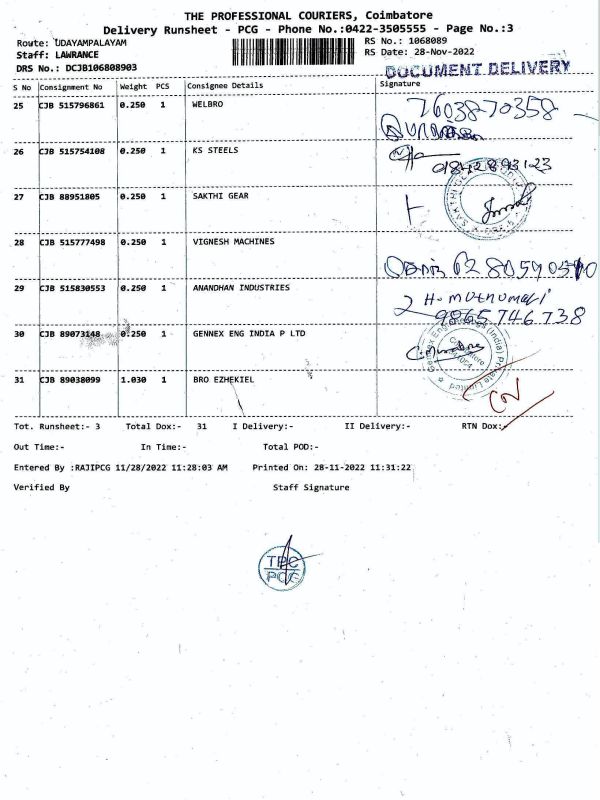 THE PROFESSIONAL COURIERS, Coimbatore
Delivery Runsheet - PCG - Phone No.:0422-3505555 - Page No.:3
Route: UDAYAMPALAYAM RS No.: 1068089
Staff: LAWRANCE RS Date: 28-Nov-2022
DRS No.: DCJB106808903 DOCUMENT DELIVERY
S No Consignment No Weight PCS Consignee Details Signature
25 CJB 515796861 0.250 1 WELBRO 7603870358
26 CJB 515754108 0.250 1 KS STEELS 9842893123
27 CJB 88951805 0.250 1 SAKTHI GEAR
28 CJB 515777498 0.250 1 VIGNESH MACHINES
29 CJB 515830553 0.250 1 ANANDHAN INDUSTRIES
9865746738
30 CJB 89073148 0.250 1 GENNEX ENG INDIA P LTD
31 CJB 89038099 1.030 1 BRO EZHEKIEL
Tot. Runsheet:- 3 Total Dox:- 31 I Delivery:- II Delivery:- RTN Dox:-
Out Time:- In Time:- Total POD:-
Entered By :RAJIPCG 11/28/2022 11:28:03 AM Printed On: 28-11-2022 11:31:22
Verified By Staff Signature
TPC
PCG